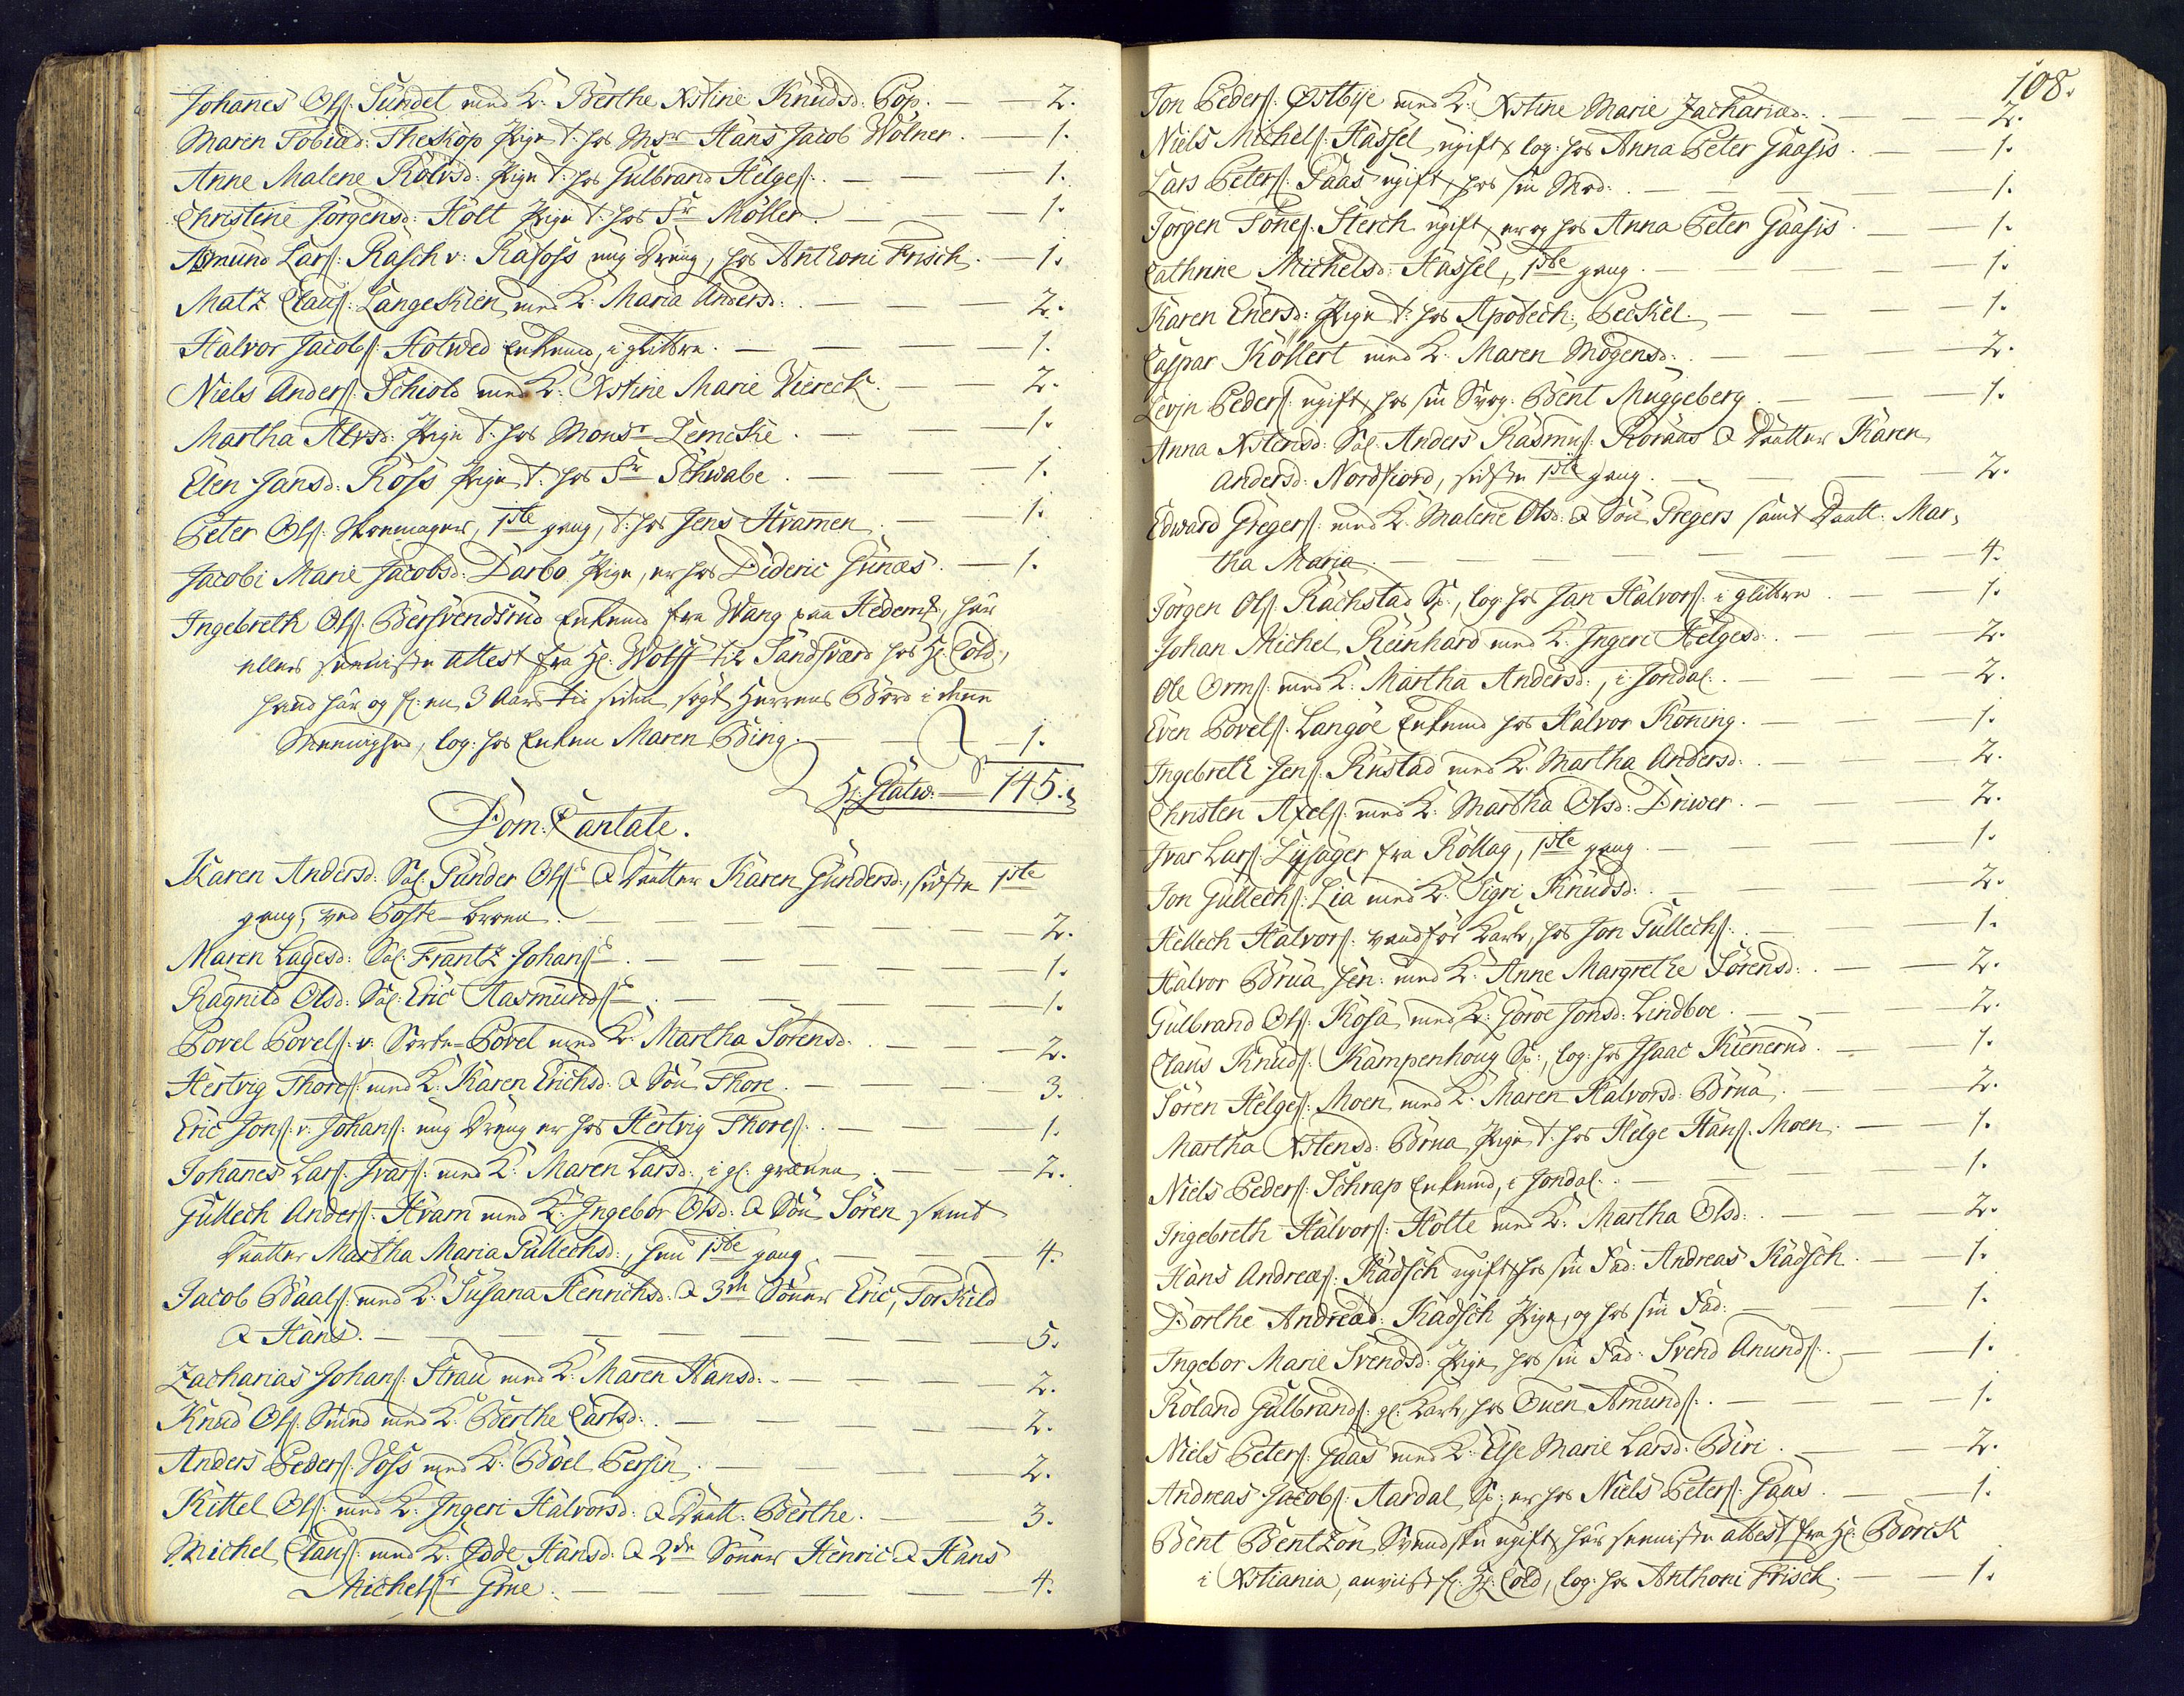 Johannes Ols: Sundet med K: Berthe Xstine Knudsd: Pop. — 2.
Maren Tobiæd: Theskop Pige t: hos Msr Hans Jacob Wölner. — 1.
Anne Malene Rolvsd: Pige t: hos Gulbrand Helges: — 1.
Christine Jörgensd: Holt Pige t: hos Sr Möller. — 1.
Asmund Lars: Rasch v: Rafoss ung Dreng, hos Anthoni Frisch. — 1.
Matz Claus: Langeskien med K: Maria Andersd: — 2.
Halvor Jacobs: Hotved Enkemd, i glittre. — 1.
Niels Anders: Schiold med K: Xstine Marie Viereck. — 2.
Martha Alvsd: Pige t: hos Monsr Lemcke. — 1.
Elen Jansd: Röss Pige t: hos Sr Schwabe. — 1.
Peter Ols: Skoemager, 1ste gang, t: hos Jens Kramer. — 1.
Jacobi Marie Jacobsd: Darbo Pige, er hos Dideric Gunæs. — 1.
Ingebreth Ols: Bersvendsrud Enkemd fra Wang paa Hedem:, har
ellers seeniste attest fra H: Wolff til Sandsværd hos H: Cold,
hand har og for en 3 Aars tid siden sögt Herrens Bord i denne
Meenighed, log: hos Enken Maren Bing. — 1.
H: 145.
Dom: Cantate.
Karen Andersd: Sal: Gunder Ols: & Datter Karen Gundersd:, sidste 1ste
gang, ved Poste-broen. — 2.
Maren Lagesd: Sal: Frantz Johans: — 1.
Ragnild Olsd: Sal: Eric Aasmunds: — 1.
Povel Povels: v: Sorte-Povel med K: Martha Sörensd: — 2.
Hertvig Thores: med K: Karen Erichsd: & Sön Thore. — 3.
Eric Jons: v: Johans: ung Dreng er hos Hertvig Thores: — 1.
Johannes Lars: Ivars: med K: Maren Larsd:, i gl: gruven. — 2.
Gullech Anders: Kram med K: Ingebor Olsd: & Sön Sören samt
Datter Martha Maria Gullechsd:, hun 1ste gang. — 4.
Jacob Baals: med K: Susana Henrichsd: & 3de Sönner Eric, Torkild
& Hans. — 5.
Zacharias Johans: Strau med K: Maren Hansd: — 2.
Knud Ols: Smed med K: Berthe Carlsd: — 2.
Anders Peders: Voss med K: Böel Persin. — 2.
Kittel Ols: med K: Ingeri Halvorsd: & Datt: Berthe. — 3.
Michel Claus: med K: Odde Hansd: & 2de Sönner Henric & Hans
Michels: Grue. — 4.
108.
Jon Peders: Østbye med K: Xstine Marie Zachariæd: — 2.
Niels Michels: Hassel ugift, log: hos Anna Peter Gaasis. — 1.
Lars Peters: Gaas ugift, hos sin Mod: — 1.
Jörgen Tönes: Sterch ugift, er og hos Anna Peter Gaasis. — 1.
Cathrine Michelsd: Hassel, 1ste gang. — 1.
Karen Enersd: Pige t: hos Apodech: Peckel. — 1.
Caspar Köllert med K: Maren Mogensd: — 2.
Levin Peders: ugift, hos sin Svog: Bent Muggeberg. — 1.
Anna Xstensd: Sal: Anders Rasmus: Roraas & Datter Karen
Andersd: Nordfiord, sidste 1ste gang. — 2.
Edward Gregers: med K: Malene Olsd: & Sön Gregers samt Datt: Mar-
tha Maria. — 4.
Jörgen Ols: Rachstad Sp:, log: hos Jan Halvors: i glittre — 1.
Johan Michel Reinhard med K: Ingeri Helgesd: — 2.
Ole Orms: med K: Martha Andersd:, i Jondal. — 2.
Even Povels: Langöe Enkemd hos Halvor Köning. — 1.
Ingebreth Jens: Rustad med K: Martha Andersd: — 2.
Christen Axels: med K: Martha Olsd: Driver. — 2.
Ivar Lars: Lysager fra Rollag, 1ste gang. — 1.
Jon Gullechs: Lia med K: Sigri Knudsd: — 2.
Hellech Halvors: vandför Karl, hos Jon Gullechs: — 1.
Halvor Brua sen: med K: Anne Margrethe Sörensd: — 2.
Gulbrand Ols: Kosa, med K: Göroe Jonsd: Lindboe. — 2.
Claus Knuds: Kampenhoug Sp:, log: hos Isaac Kienerud. — 1.
Sören Helges: Moen, med K: Maren Halvorsd: Brua. — 2.
Martha Xstensd: Brua Pige t: hos Helge Hans: Moen. — 1.
Niels Peders: Schrap Enkemd, i Jondal. — 1.
Ingebreth Halvors: Holte med K: Martha Olsd: — 2.
Hans Andreæs: Kadsch ugift, hos sin Fad: Andreas Kadsch. — 1.
Dorthe Andreæd: Kadsch Pige, og hos sin Fad: — 1.
Ingebor Marie Svendsd: Pige, hos sin Fad: Svend Anunds: — 1.
Roland Gulbrands: gl: Karl, hos Ouen Amunds: — 1.
Niels Peters: Gaas med K: Else Marie Larsd: Biri. — 2.
Andreas Jacobs: Aardal Sp: er hos Niels Peters: Gaas. — 1.
Bent Bentzon, Svendske ugift, har seeniste attest fra H: Borck
i Xstiania, anviist f: H: Cold, log: hos Anthoni Frisch. — 1.